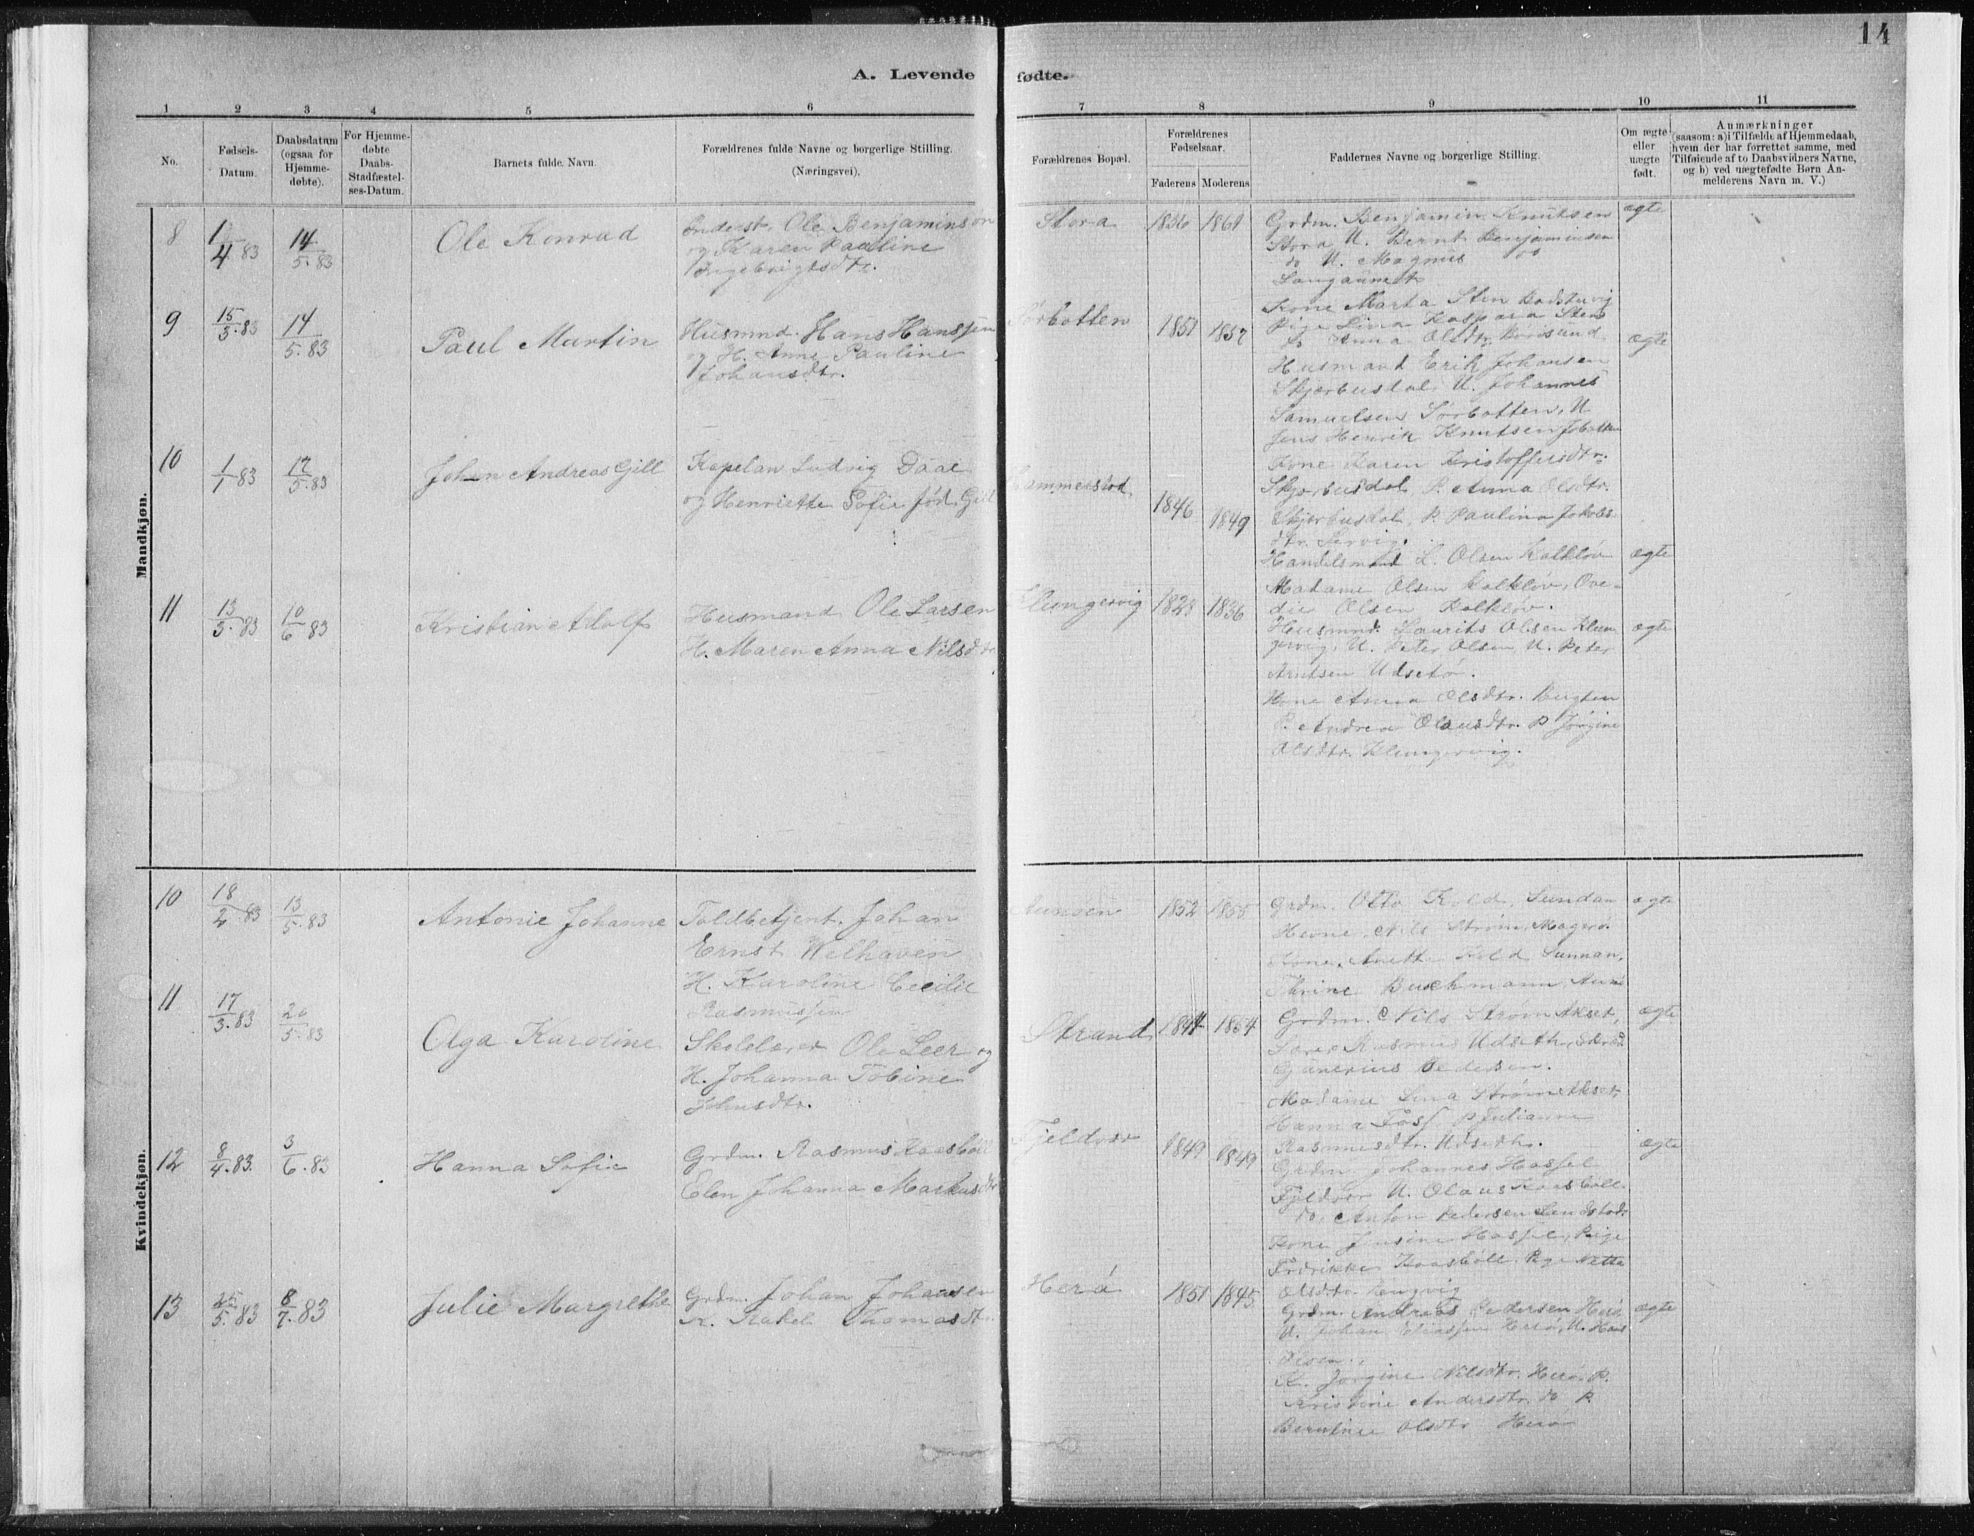 14
A. Levende fødte.
1 2 3 4 5 6 7 8 9 10 11
No.
Fødsels-
Datum.
Daabsdatum
(ogsaa for
Hjemme-
døbte).
For Hjemme-
døbte
Daabs-
Stadfæstel-
ses-Datum.
Barnets fulde Navn.
Forældrenes fulde Navne og borgerlige Stilling.
(Næringsvei).
Forældrenes Bopæl.
Forældrenes
Fødselsaar.
Faderens Moderens
Faddernes Navne og borgerlige Stilling.
Om ægte
eller
uægte
født.
Anmærkninger
(saasom: a) i Tilfælde af Hjemmedaab,
hvem der har forrettet samme, med
Tilføiende af to Daabsvidners Navne,
og b) ved uægtefødte Børn An-
melderens Navn m. V.)
Mandkjøn.
8 1/4 83 14/5.83 Ole Konrad
Inderst. Ole Benjaminsøn
og Karen Pauline
Ingebrigtsdtr.
Stora 1836 1861
Grdm. Benjamin Knutsen
Stora U. Bernt Benjaminsen
do U. Magnus
Langaunet
Kone Marta Sten
Pige Lina Kaspara Sten
do Anna Olsdtr.
ægte
9 15/3.83 14/5.83 Paul Martin
Husmnd. Hans Hanssen
og H. Anne Pauline
Johansdtr.
Sørbotten 1851 1857
Husmand Erik Johansen
Skjærbusdal. U. Johannes
Samuelsen Sørbotten, U
Jens Henrik Knutsen
Kone Karen Kristoffersdtr.
Skjærbusdal, P. Anna Olsdtr.
Skjærbusdal, P. Paulina Jakobs
dtr.
ægte
10 1/1 83 17/5.83 Johan Andreas Gill
Kapelan Ludvig Daae
og Henriette Sofie fød. Gill
Hammerstad 1846 1849
Handelsmand L. Olsen Kalkløv
Madame Olsen Kalkløv, Ove-
die Olsen Kalkløv.
ægte
11 13/3.83 10/6 83 Kristian Adolf
Husmand Ole Larsen
H. Maren Anna Nilsdtr
Klungervig 1828 1836
Husmnd. Laurits Olsen Klun
gervig, U. Peter Olsen U. Peter
Arntsen Udsetø.
Kone Anna Olsdtr. Bugten
P. Andrea Olausdtr. P Jørgine
Olsdtr. Klungervig.
ægte
Kvindekjøn.
10 18/2.83 13/5.83 Antonie Johanne
Toldbetjent. Johan
Ernst Welhaven
H. Karoline Cecilie
Rasmussen
1852 1855
Grdm. Otto Kold, Sundan
Nils Strøm, Magerø.
Kone Anette Kold Sunnan,
Thrine Buschmann,
ægte
11 17/3.83 20/5.83 Olga Karoline
Skolelærer Ole Leer og
H. Johanna Tobine
Johnsdtr.
Strand 1844 1854
Grdm. Nils Strøm Akset,
Rasmus Udseth,
Gunerius Pedersen.
Madame Lina Strøm Akset,
Hanna Foss P Julianne
Rasmusdtr. Udsethr.
ægte
12 8/4.83. 3/6.83 Hanna Sofie
Grdm. Rasmus Kaasbøll
Elen Johanna Markusdtr
Fjeldvær 1849 1849
Grdm. Johannes Hassel
Fjeldvær U. Olaus Kaasbøll.
do. Anton Pedersen
Kone Jusine Hassel, Pige
Fredrikke Kaasbøll. Pige Netta
Olsdtr.
ægte
13 25/5.83 8/7.83 Julie Margrethe
Grdm. Johan Johansen
K. Rakel Thomasdtr.
Herø 1851 1845.
Grdm. Andreas Pedersen Herø
U. Johan Eliassen Herø, U. Hans
Olsen.
K. Jørgine Nilsdtr. Herø. P.
Kristine Andersdtr. do P.
Berntine Olsdtr Herø
ægte